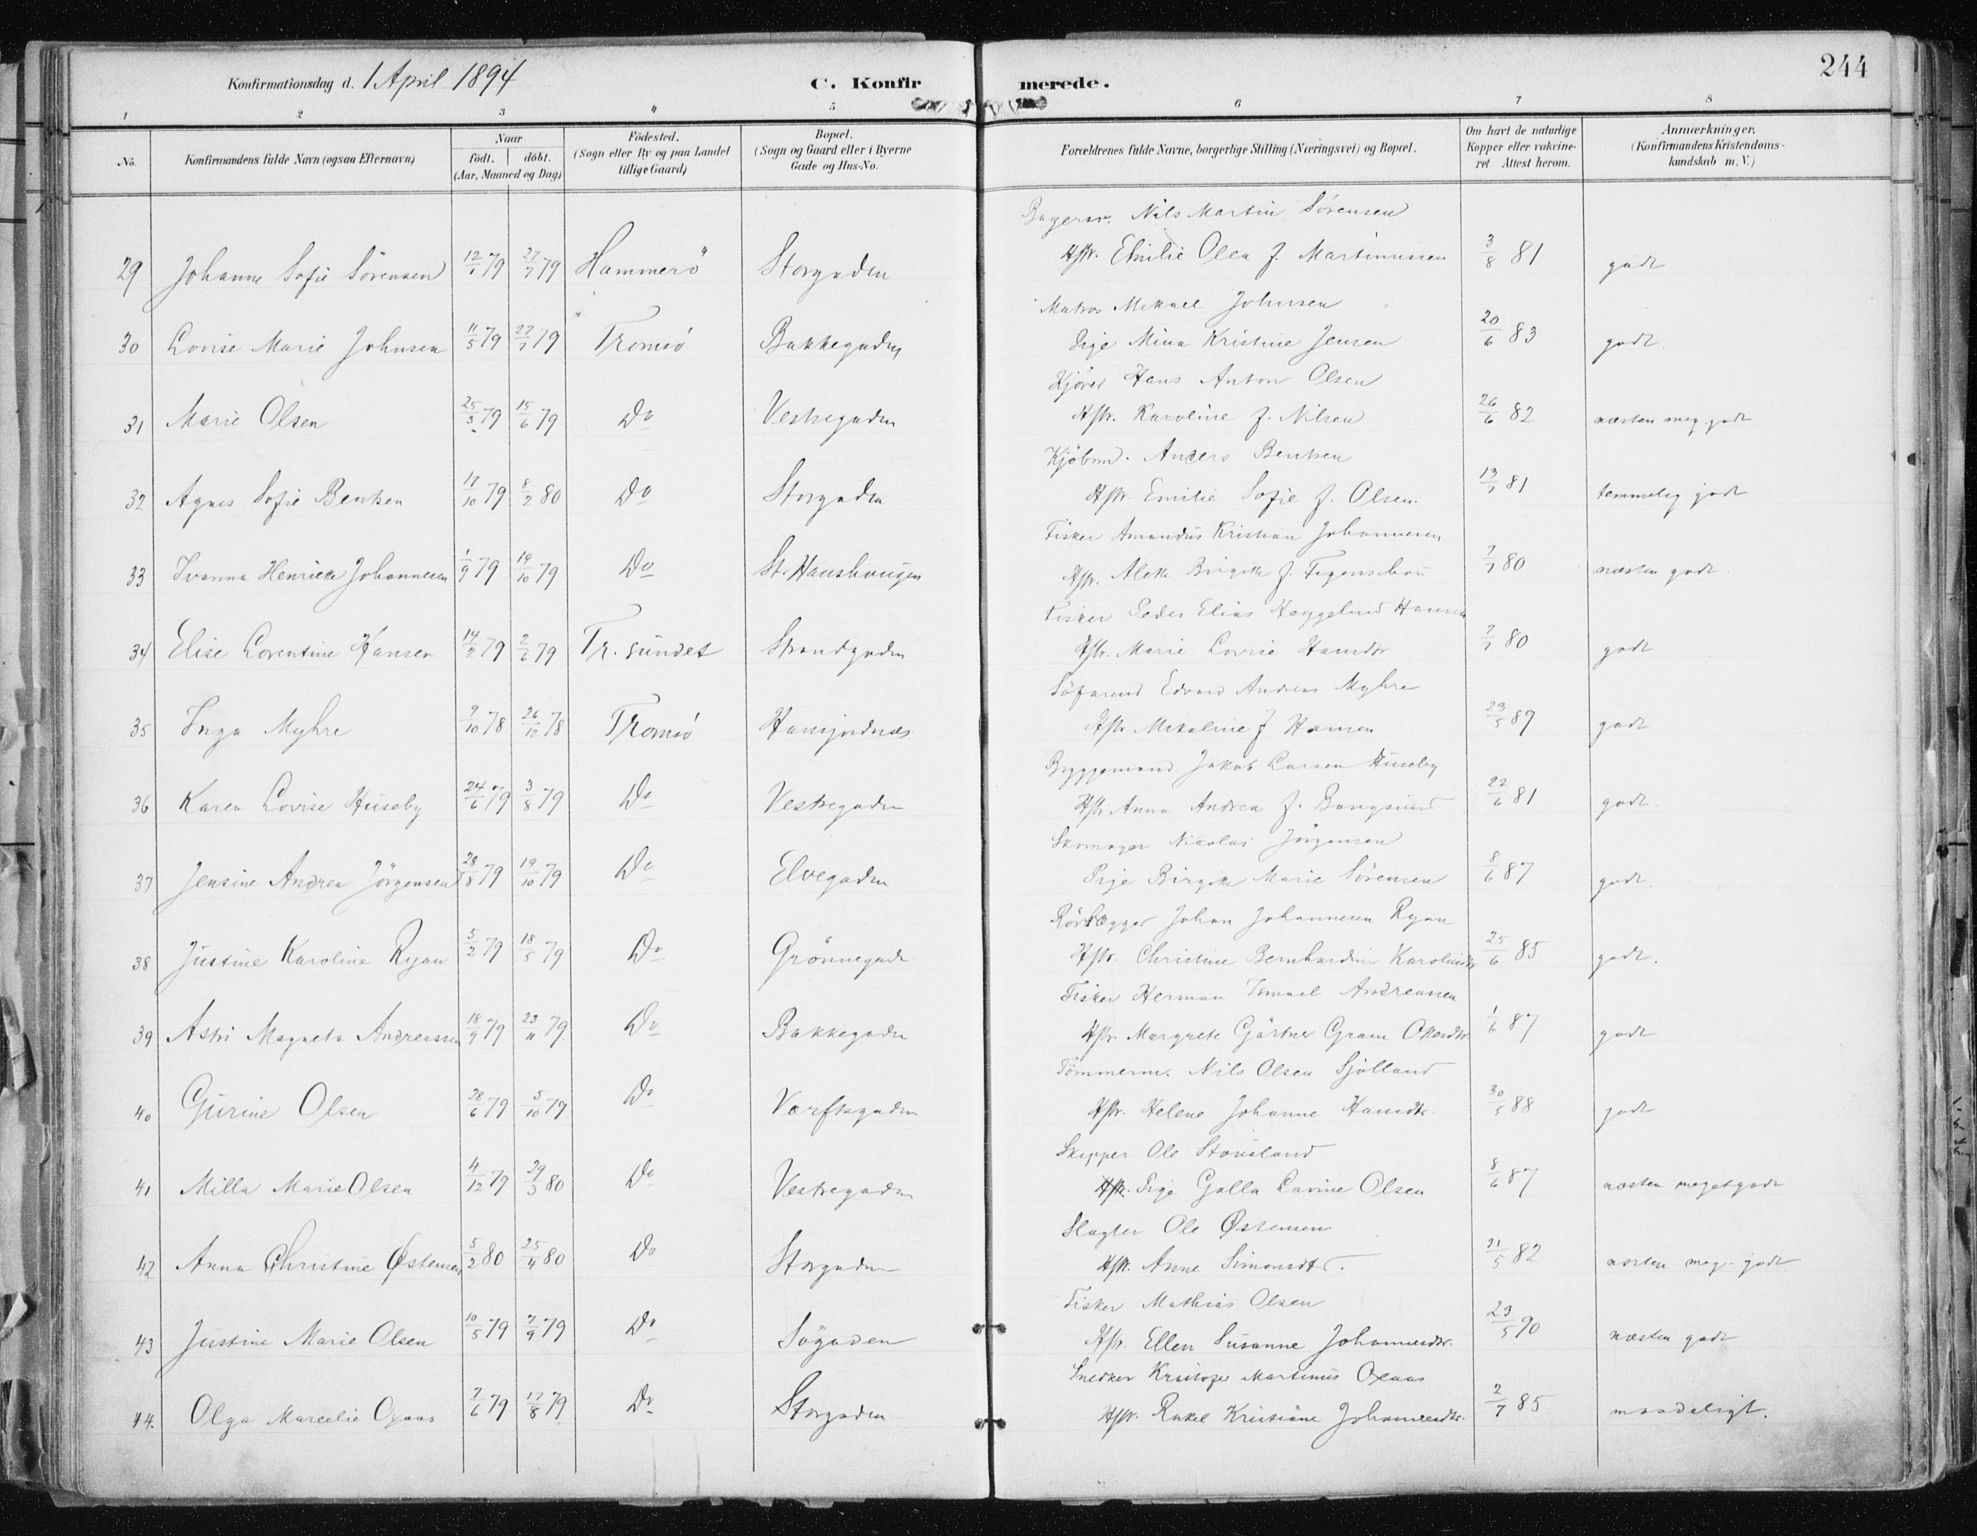 244
Konfirmationsdag d. 1 April 1894 C. Konfirmerede.
1 2 3 " 5 6 7 8
No. Konfirmandens fulde Navn (ogsaa Efternavn) Naar födt. döbt. (Aar, Maaned og Dag) Födested. (Sogn eller By og paa Landet tillige Gaard) Bopæl. (Sogn og Gaard eller i Byerne Gade og Hus-No. Forældrenes fulde Navne, borgerlige Stilling (Næringsvei) og Bopæl. Om havt de naturlige Kopper eller vakcineret. Attest herom. Anmærkninger. (Konfirmandens Kristendomskundskab m. V.)
Nils Martin Sörensen
29 Johanne Sofie Sörensen 12/1 79 27/7 79 Hammerö Storgaden Hstr. Emilie Olea f. Martinussen 3/8 81 godt
Matros Mikael Johnsen
30 Lovise Marie Johnsen 11/5 79 27/7 79 Tromsö Bakkegaden Pige Mina Kristine Jensen 20/6 83 godt.
Kjörer Hans Anton Olsen
31 Marie Olsen 25/3 79 15/6 79 Do Vestregaden Hstr. Karoline f. Nilsen 26/6 82 næsten meg. godt
Kjöbm. Anders Bentsen
32 Agnes Sofie Bentsen 17/10 79 8/2 80 Do Storgaden Hstr. Emilie Sofie f. Olsen. 13/7 81 temmelig godt
Fisker Amandus Kristian Johannesen
33 Ivanna Henrikke Johannesen 1/9 79 19/10 79 Do St. Hanshaugen Hstr. Alette Birgitte f. Figenschou 7/7 80 næsten godt
Fisker Peder Elias Heggelund Hansen
34 Elise Lorentine Hansen 14/2 79 2/6 79 Tr. sundet Strandgaden Hstr. Marie Lovise Hansdtr 7/7 80 godt
Söfarend Edvard Andreas Myhre
35 Inga Myhre 9/10 78 26/12 78 Tromsö Hansjordnæs Hstr Mikaline f Hansen 23/5 89 godt
Byggemand Jakob Larsen Huseby
36 Karen Lovise Huseby 24/6 79 3/8 79 Do Vestregaden Hstr Anna Andrea f. Bangsund 22/6 81 godt.
Skomager Nikolai Jörgensen
37 Jensine Andrea Jörgensen 28/8 79 19/10 79 Do Elvegaden Pige Birgitte Marie Sörensen 8/6 87 godt.
Rörlægger Johan Johannesen Ryan
38 Justine Karoline Ryan 5/2 79 18/5 79 Do Grönnegade Hstr. Christine Bernhardine Karolinedtr 25/6 85 godt.
Fisker Herman Ismael Andreassen
39 Astri Magreta Andreassen 18/9 79 23/11 79. Do Bakkegaden Hstr. Margrete Gärtner Gram Olsendtr. 1/6 87 godt
Tömmerm. Nils Olsen Sjölland
40 Gurine Olsen 28/6 79 5/10 79 Do Værftsgaden Hstr. Helene Johanne Hansdtr. 30/5 88 godt
Skipper Ole Stousland
41 Milla Marie Olsen 4/12 79 29/3 80 Do Vestregaden Pige Golla Lavine Olsen 8/6 87 næsten meget godt
Slagter Ole Östensen
42 Anna Christine Östensen 5/2 80 25/4 80 Do Storgaden Hstr. Anne Simonsdtr. 21/5 82 næsten meg. godt
Fisker Mathias Olsen
43 Justine Marie Olsen 10/5 79 7/9 79 Do Sögaden Hstr. Ellen Susanne Johannesdtr. 23/5 90 næsten godt
Snedker Kristofer Martinus Oxaas
44. Olga Marcelie Oxaas 7/6 79 17/8 79 Do Storgaden Hstr. Rakel Kristiane Johannesdtr. 2/7 85 maadeligt.